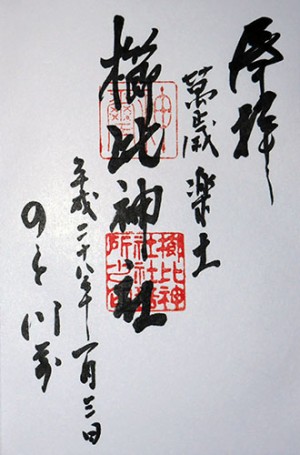 奉拝
萬歳楽土
櫛比神社
櫛比神社社務所之印
平成二十八年一月三日
のと門前